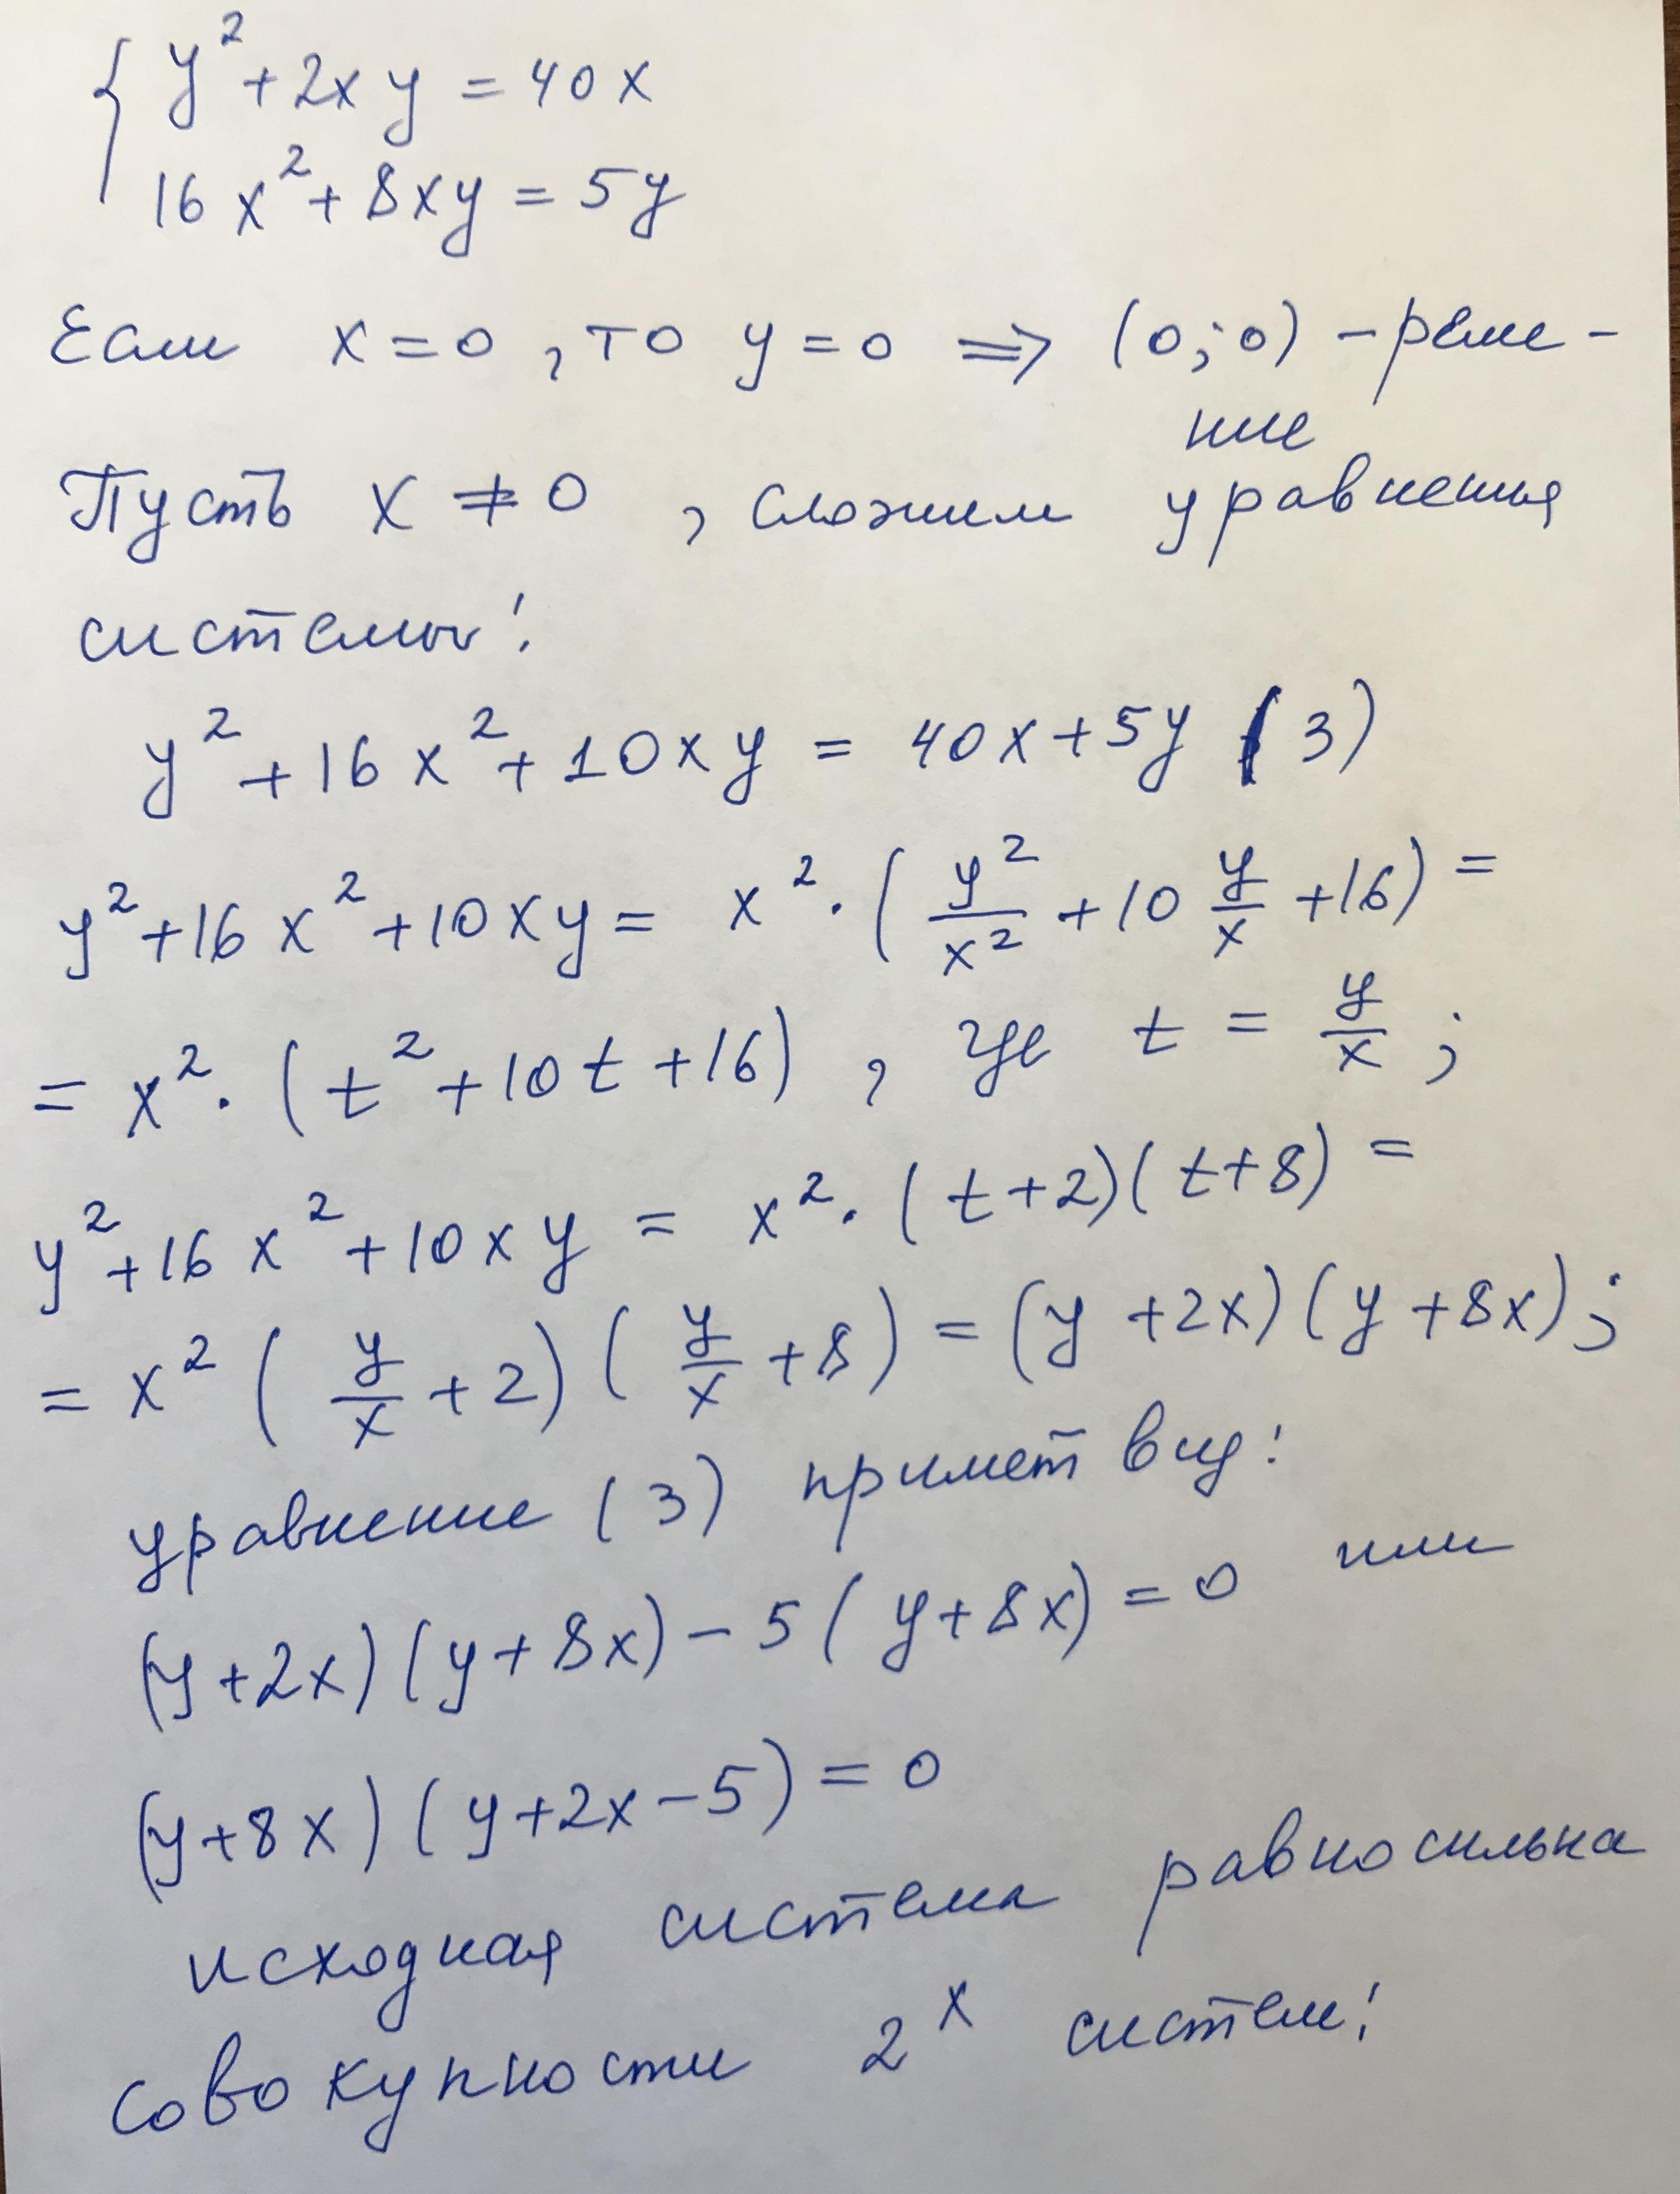 { y² + 2xy = 40x
16x² + 8xy = 5y
Если x = 0, то y = 0 ⇒ (0;0) - реше-
ние
Пусть x ≠ 0, сложим уравнения
системы:
y² + 16x² + 10xy = 40x + 5y (3)
y² + 16x² + 10xy = x² · (y²/x² + 10 y/x + 16) =
= x² · (t² + 10t + 16), где t = y/x;
y² + 16x² + 10xy = x² · (t+2)(t+8) =
= x² (y/x + 2)(y/x + 8) = (y + 2x)(y + 8x);
уравнение (3) примет вид:
(y + 2x)(y + 8x) - 5(y + 8x) = 0 или
(y + 8x)(y + 2x - 5) = 0
исходная система равносильна
совокупности 2ˣ систем: